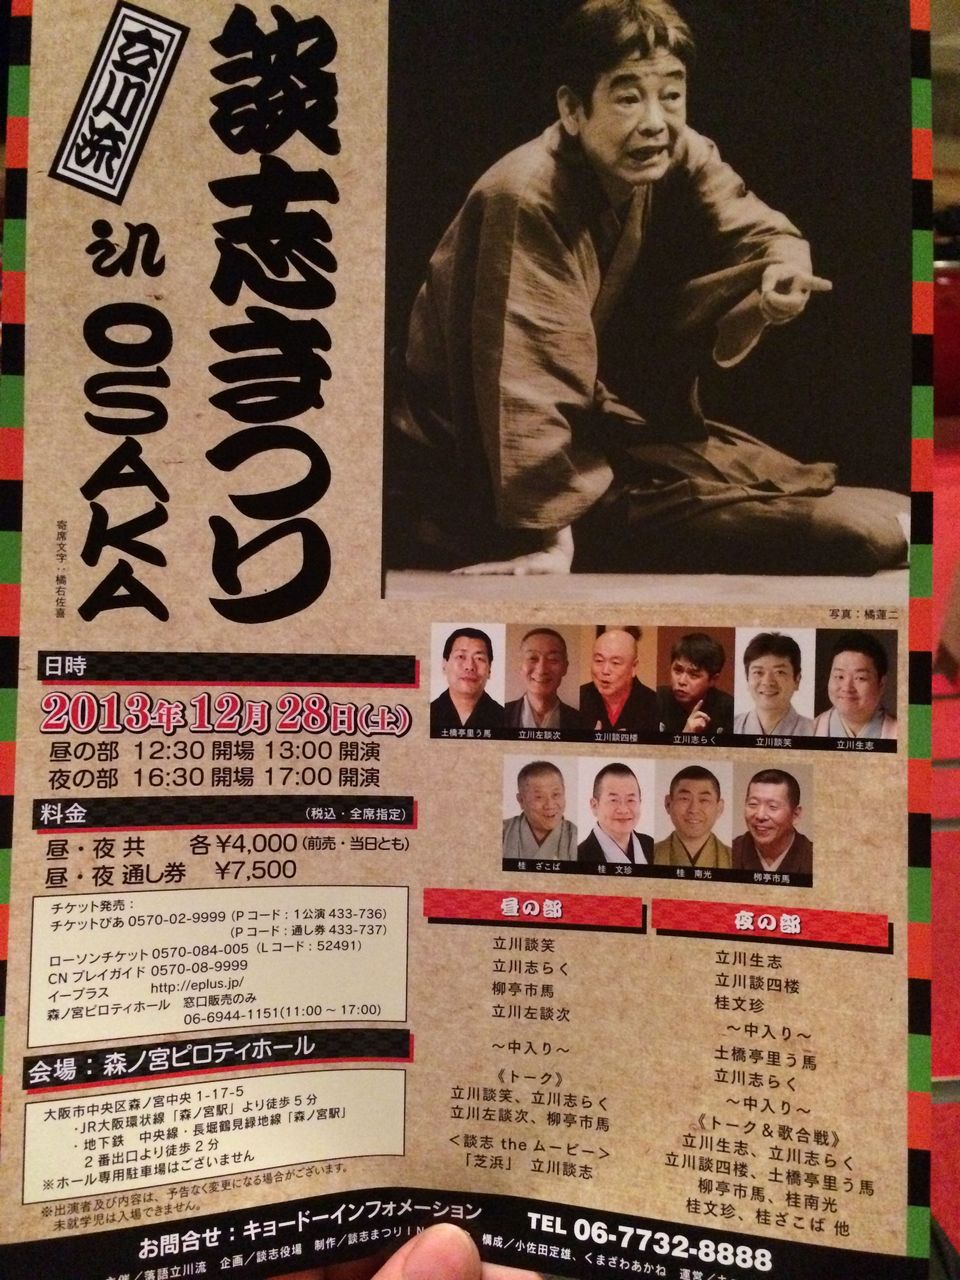 談志まつり
立川流
in OSAKA
寄席文字：橘右佐喜
写真：橘蓮二
日時
2013年12月28日(土)
昼の部 12:30 開場 13:00 開演
夜の部 16:30 開場 17:00 開演
料金 (税込・全席指定)
昼・夜 共 各 ¥4,000 (前売・当日とも)
昼・夜 通し券 ¥7,500
チケット発売：
チケットぴあ 0570-02-9999 (P コード：1公演 433-736)
(P コード：通し券 433-737)
ローソンチケット 0570-084-005 (L コード：52491)
CN プレイガイド 0570-08-9999
イープラス http://eplus.jp/
森ノ宮ピロティホール 窓口販売のみ
06-6944-1151(11:00 ~ 17:00)
会場：森ノ宮ピロティホール
大阪市中央区森ノ宮中央 1-17-5
・JR大阪環状線「森ノ宮駅」より徒歩 5 分
・地下鉄 中央線・長堀鶴見緑地線「森ノ宮駅」
2 番出口より徒歩 2 分
※ホール専用駐車場はございません
※出演者及び内容は、予告なく変更になる場合がございます。
未就学児は入場できません。
土橋亭里う馬 立川左談次 立川談四楼 立川志らく 立川談笑 立川生志
桂 ざこば 桂 文珍 桂 南光 柳亭市馬
昼の部
立川談笑
立川志らく
柳亭市馬
立川左談次
～中入り～
《トーク》
立川談笑、立川志らく
立川左談次、柳亭市馬
＜談志 the ムービー＞
「芝浜」 立川談志
夜の部
立川生志
立川談四楼
桂文珍
～中入り～
土橋亭里う馬
立川志らく
～中入り～
《トーク＆歌合戦》
立川生志、立川志らく
立川談四楼、土橋亭里う馬
柳亭市馬、桂南光
桂文珍、桂ざこば 他
お問合せ：キョードーインフォメーション TEL 06-7732-8888
主催／落語立川流 企画／談志役場 制作／談志まつり IN 構成／小佐田定雄、くまざわあかね 運営／